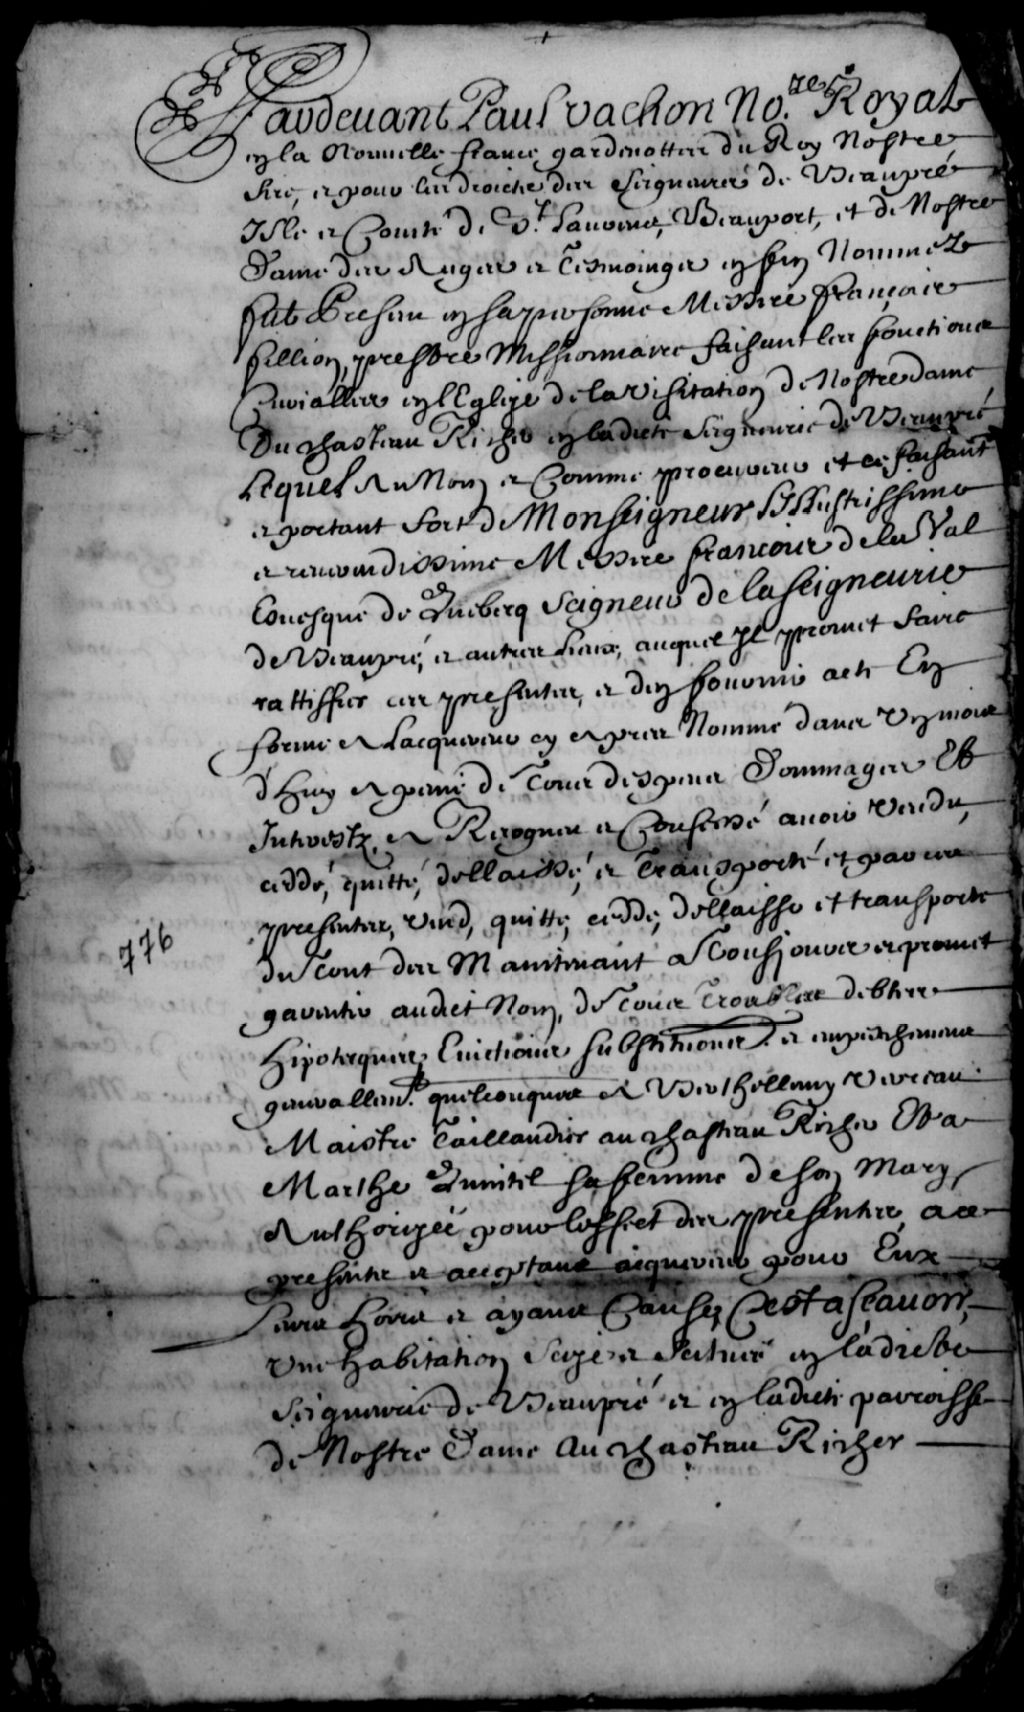 Pardeuant Paul vachon No.re Royal
en la Nouuelle france, gardenottes du Roy Nostre
Sire, et pour les droicts des Seigneuries de Beaupré
Isle et Comté de St. Laurens, Beauport, et de Nostre
Dame des Anges et Tesmoings en fin Nommez
fut Present en sa personne Messire françois
fillion, prestre Missionnaire faisant les fonctions
Curialles en l'Eglise de la visitation de Nostre dame
Du chasteau Richer en ladicte Seigneurie de Beaupré
Lequel Au Nom et Comme procureur et se faisant
et portant fort de Monseigneur L'Illustrissime
et reuerendissime Messire francois de la Val
Euesque de Quebecq Seigneur de la Seigneurie
de Beaupré, et autres lieux, auquel Il promet faire
rattiffier ces presentes, et d'en fournir acte En
forme A L'acquereur cy apres Nommé dans Un mois
d'huy A peine de Tous despens Dommages Et
Interestz, A Recogneu et Confessé auoir Vendu,
ceddé, quitté, dellaissé, et Transporté et par ces
presentes, Vend, quitte, cedde, dellaisse et transporte
du Tout des Maintenant a Tousjours et promet
776
garentir audict Nom, de Tous Troubles debtes
Hipotecques, Euictions substitutions et empeschemens
generallem.t quelconques A Barthellemy Verreau
Maistre Taillandier au chasteau Richer Et a
Marthe Quinitel sa femme de son Mary
Authorizée pour l'effect des presentes, a ce
presents et acceptans acquereurs pour Eux
leurs Hoirs et ayans Cause, C'est a scauoir,
Une habitation Size et scituée en ladicte
Seigneurie de Beaupré et en ladicte parroisse
de Nostre Dame du chasteau Richer